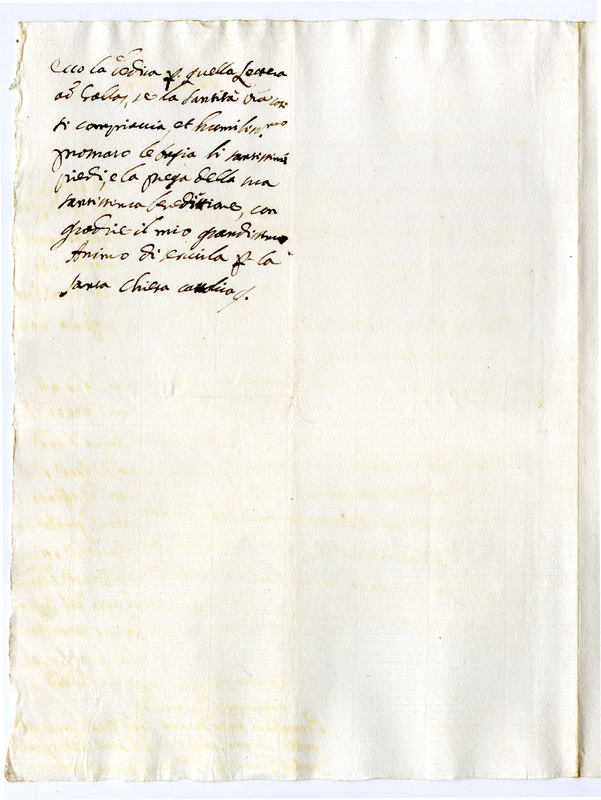 ecco la copia p. quella Lectera
ad se la Santità Vra
si compiacia et humilissimo
prostrato le bagia li santissimi
piedi, e la prega della sua
santissima beneditione, con
gradire il mio grandissimo
Animo di seruirla p. la
santa Chiesa catolica.